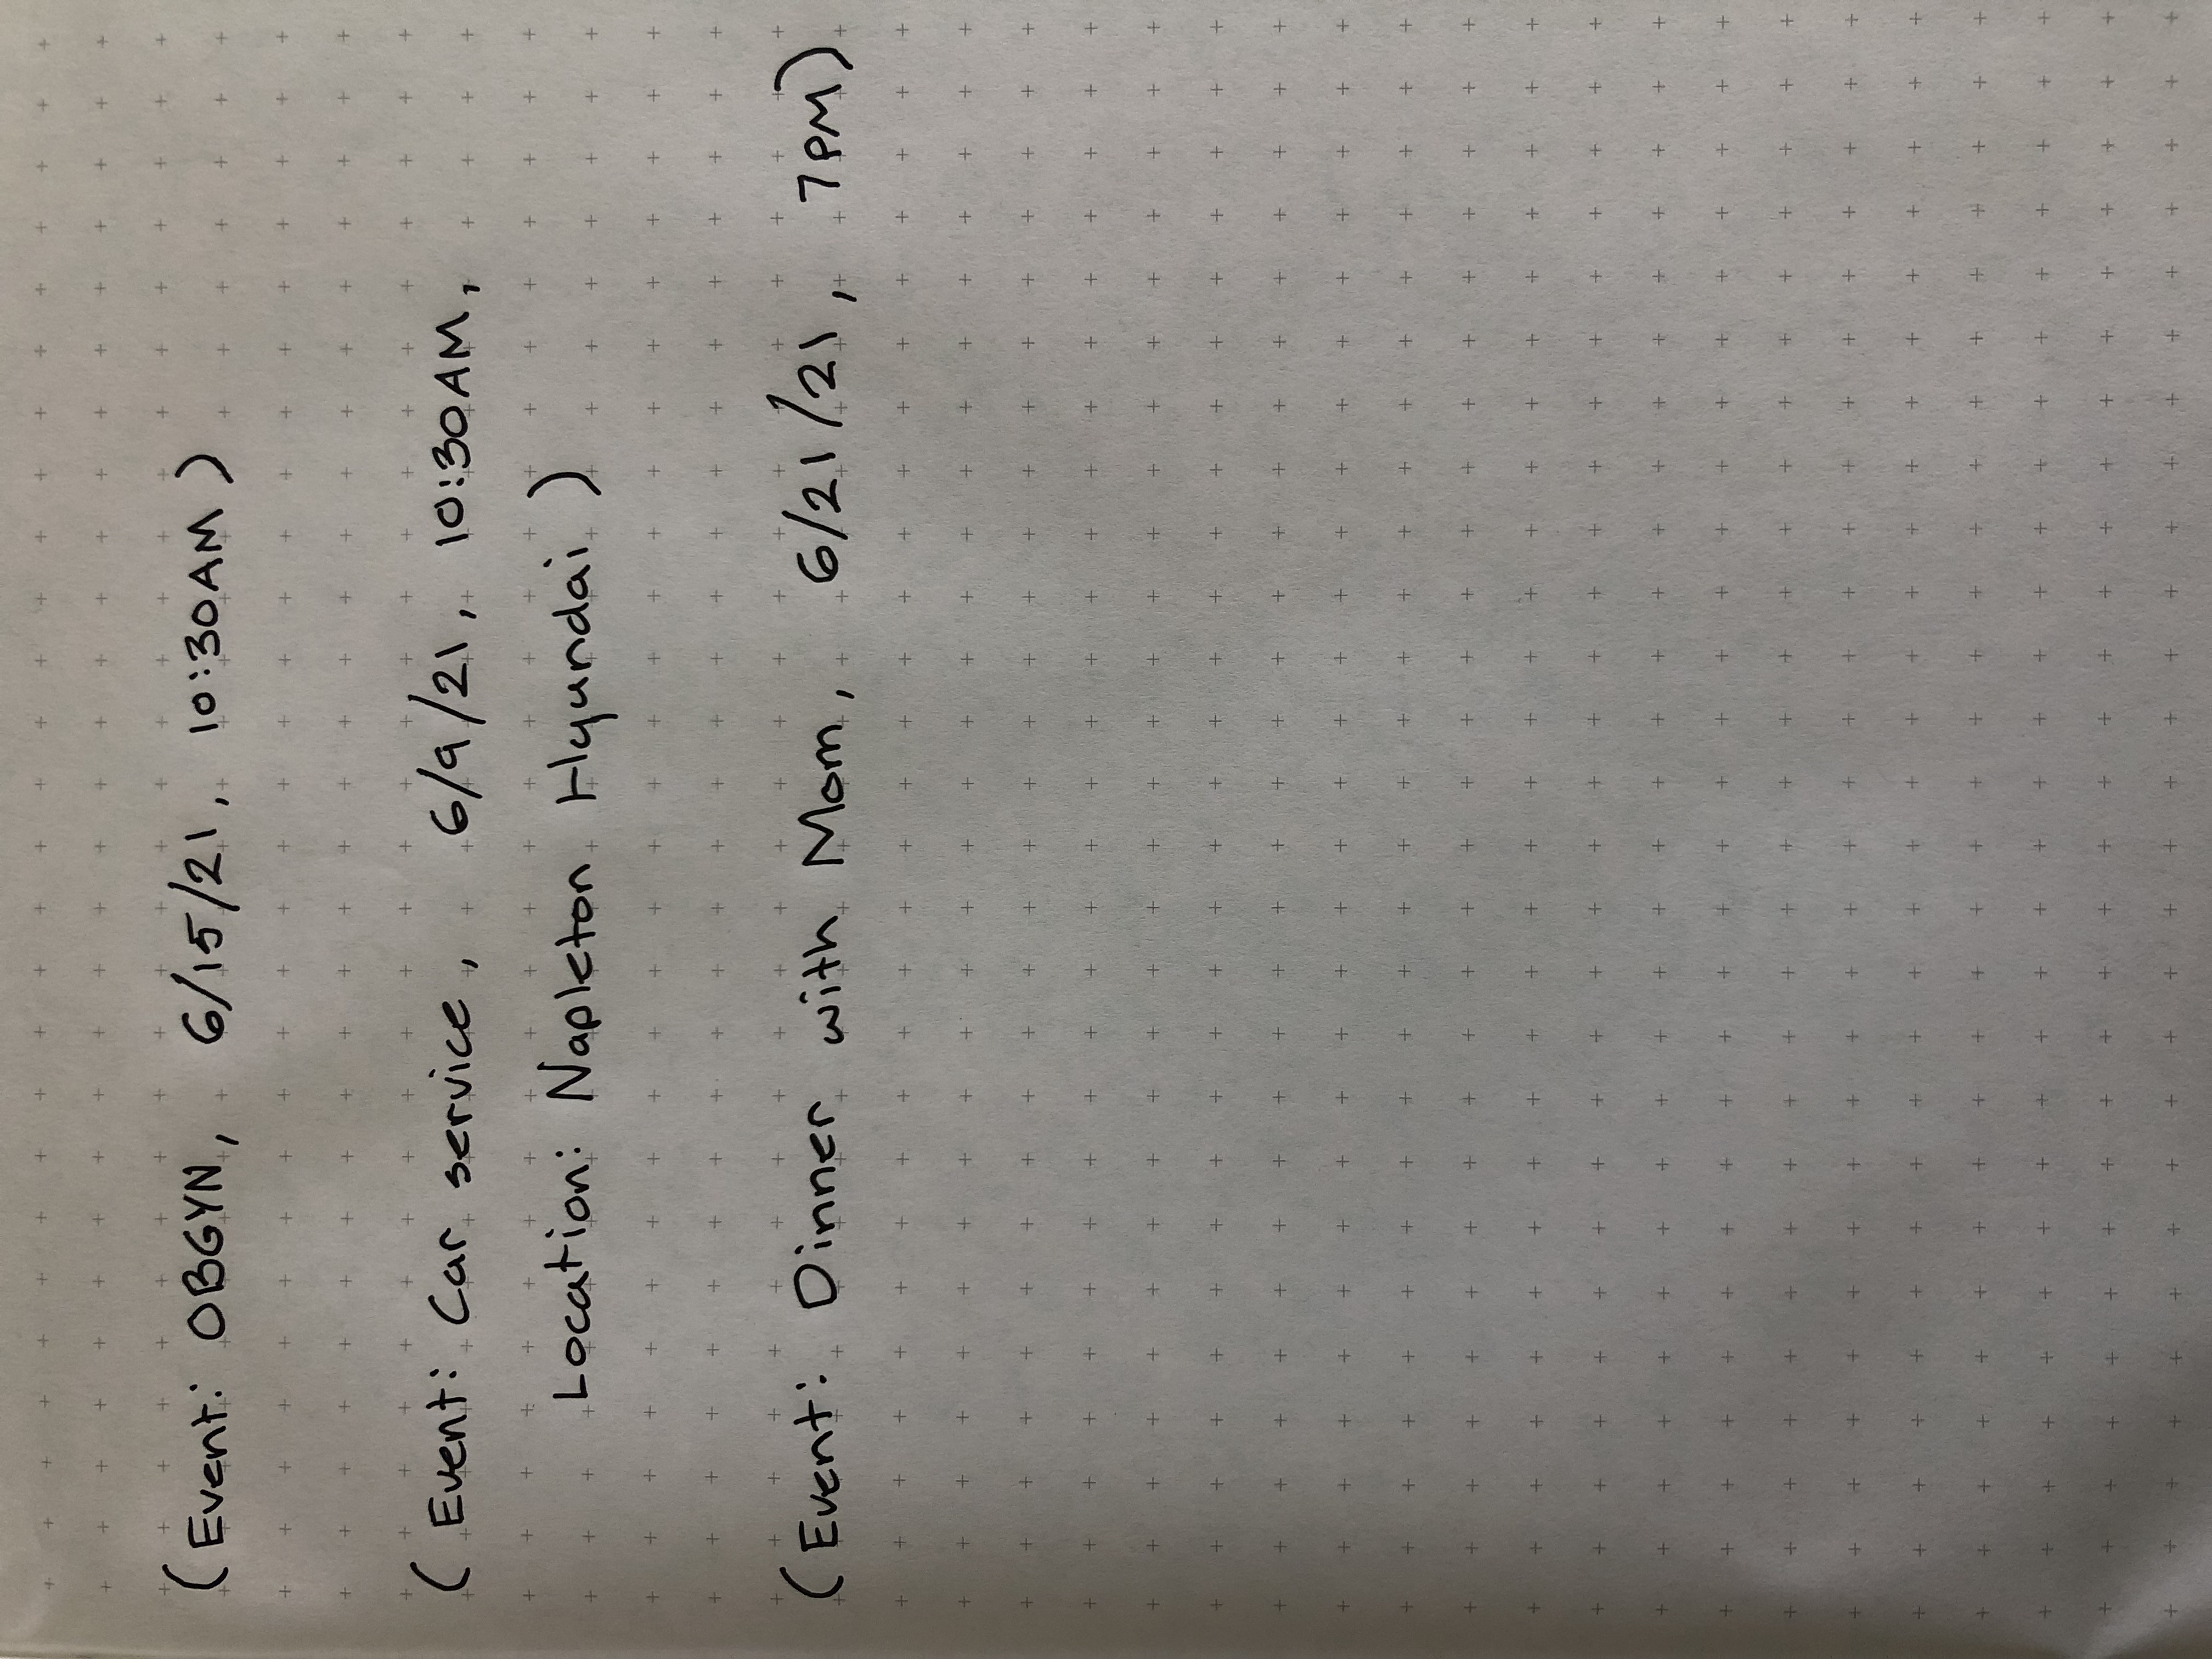 (Event: OBGYN, 6/15/21, 10:30AM)
(Event: Car service, 6/9/21, 10:30AM,
Location: Napleton Hyundai)
(Event: Dinner with Mom, 6/21/21, 7PM)